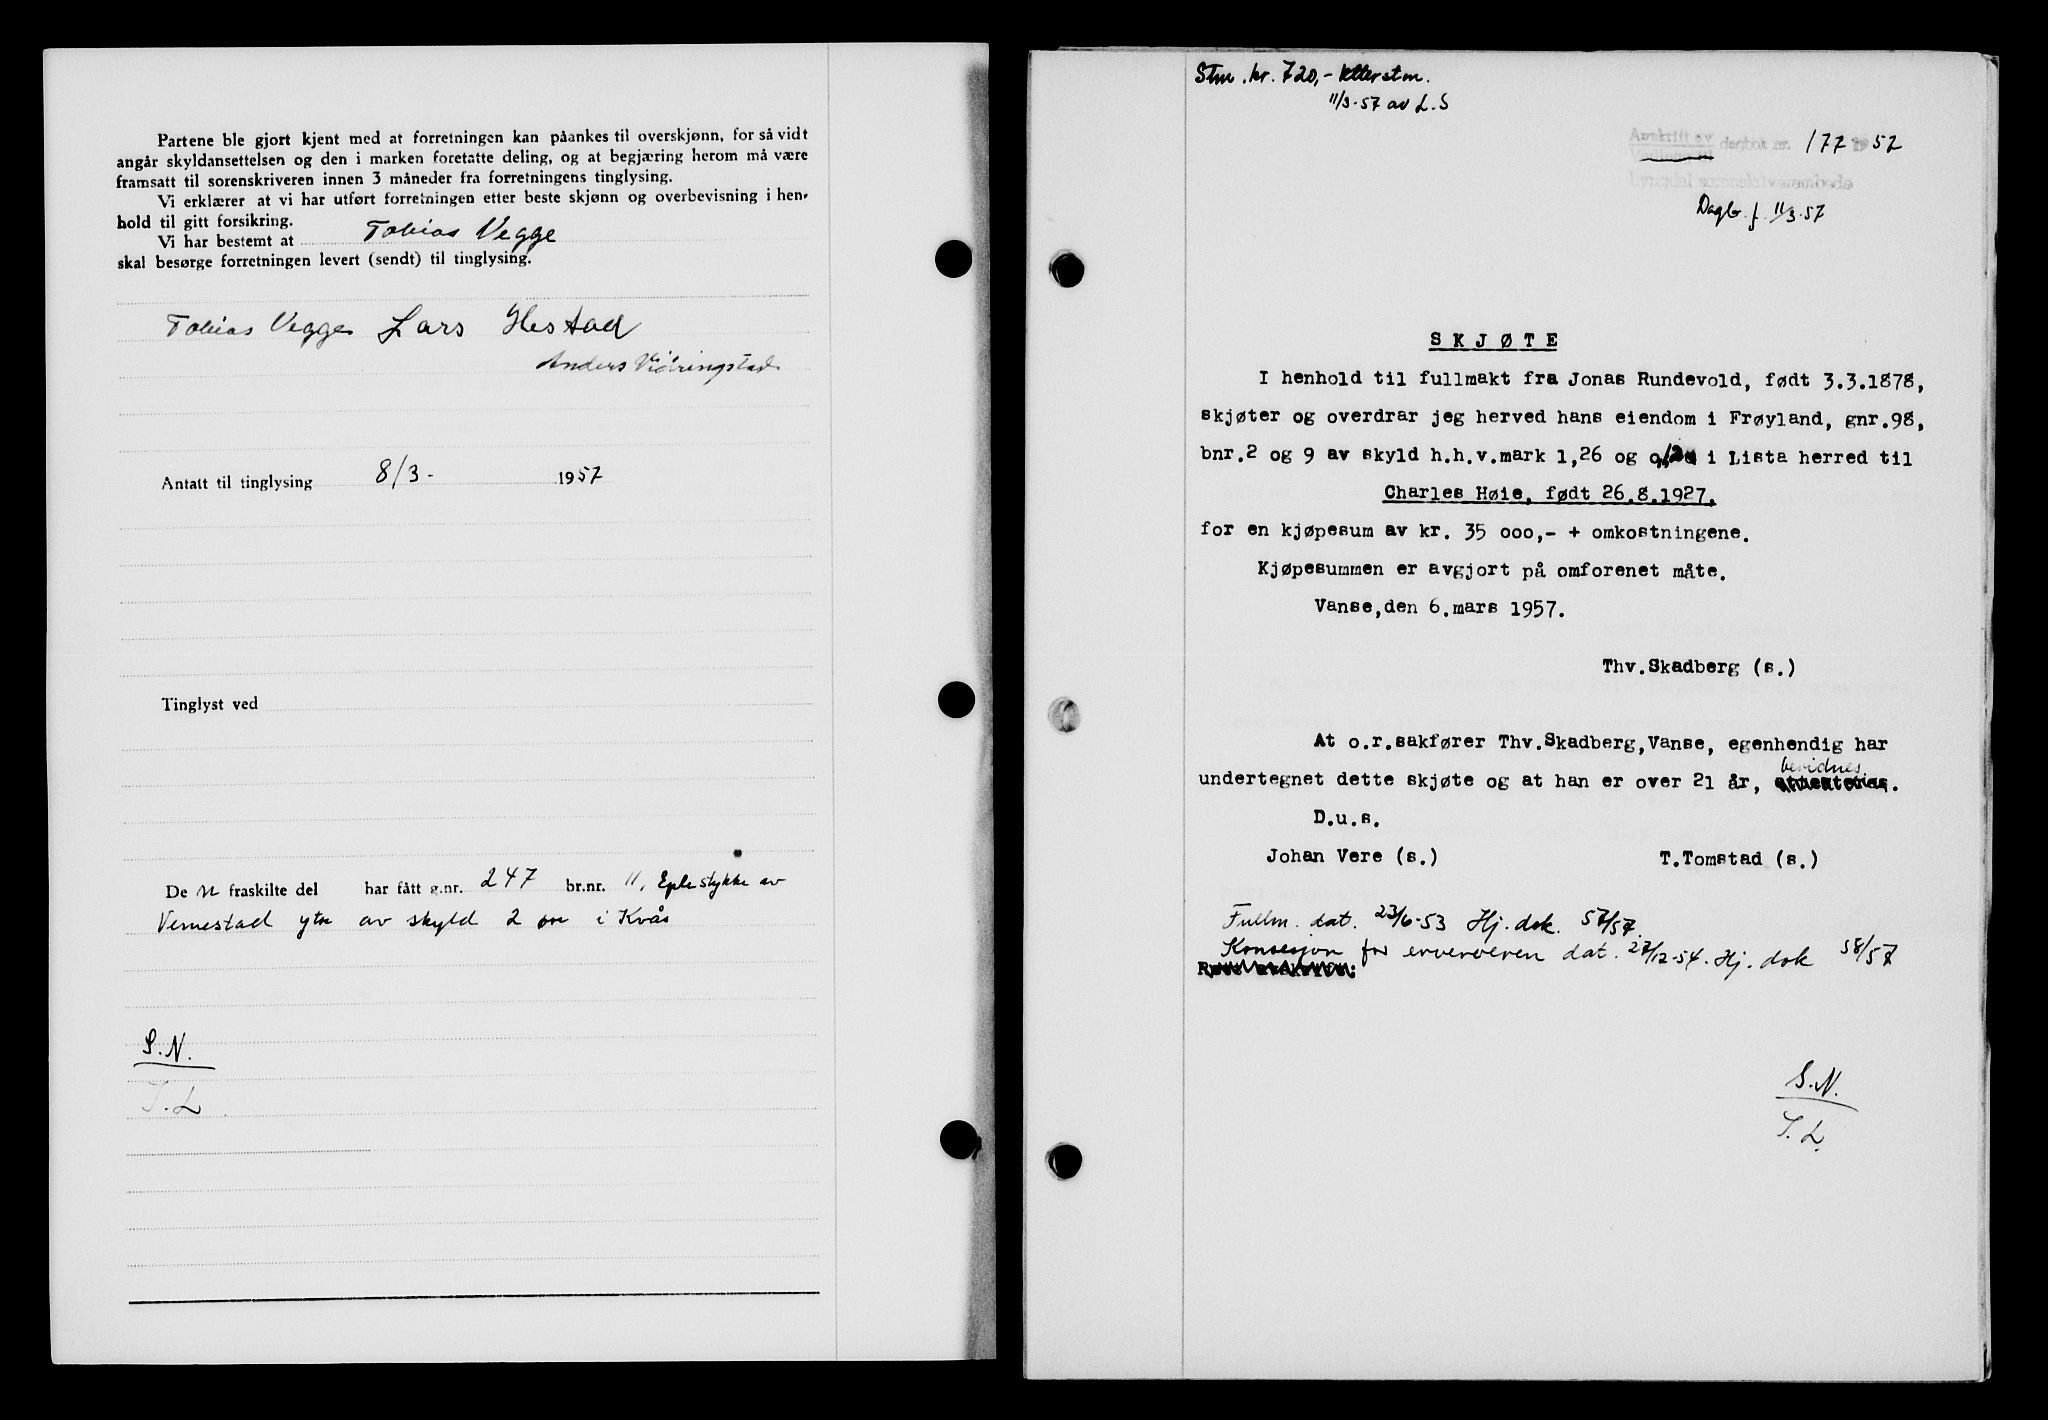 Partene ble gjort kjent med at forretningen kan påankes til overskjønn, for så vidt
angår skyldansettelsen og den i marken foretatte deling, og at begjæring herom må være
framsatt til sorenskriveren innen 3 måneder fra forretningens tinglysing.
Vi erklærer at vi har utført forretningen etter beste skjønn og overbevisning i hen-
hold til gitt forsikring.
Vi har bestemt at Tobias Vegge
skal besørge forretningen levert (sendt) til tinglysing.
Tobias Vegge Lars Hestad
Anders Vidringstad
Antatt til tinglysing 8/3- 1957
Tinglyst ved
De n fraskilte del har fått g.nr. 247 br.nr. 11, Eplestykke av
Vemestad ytre av skyld 2 øre i Kvås
S.N.
T.L
Stm. kr. 720,- etterstm.
11/3-57 av L.S
Avskrift av dagbok nr. 177 1957
Lyngdal sorenskriverembede
Dagb. f. 11/3-57
SKJØTE
I henhold til fullmakt fra Jonas Rundevold, født 3.3.1878,
skjøter og overdrar jeg herved hans eiendom i Frøyland, gnr.98,
bnr.2 og 9 av skyld h.h.v.mark 1,26 og 0,12 i Lista herred til
Charles Høie, født 26.8.1927,
for en kjøpesum av kr. 35 000,- + omkostningene.
Kjøpesummen er avgjort på omforenet måte.
Vanse,den 6.mars 1957.
Thv.Skadberg (s.)
At o.r.sakfører Thv.Skadberg,Vanse, egenhendig har
bevidnes
undertegnet dette skjøte og at han er over 21 år, attesteres.
D.u.s.
Johan Vere (s.) T.Tomstad (s.)
Fullm. dat. 23/6-53 Hj. dok. 57/57.
Konsesjon for erververen dat. 27/12-54. Hj. dok 58/57
S.N.
T.L.